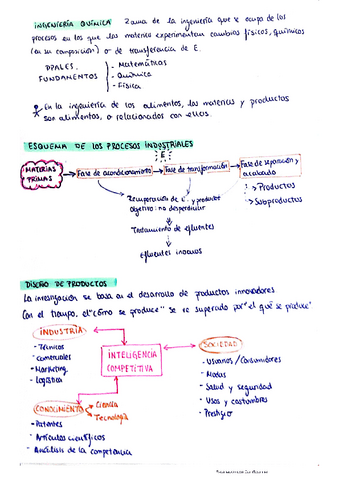 INGENIERÍA QUÍMICA Rama de la ingeniería que se ocupa de los
procesos en los que las materias experimentan cambios físicos, químicos
(en su composición) o de transferencia de E.
PPALES. FUNDAMENTOS
- Matemáticas
- Química
- Física
En la ingeniería de los alimentos, las materias y productos
son alimentos, o relacionados con ellos.
ESQUEMA DE LOS PROCESOS INDUSTRIALES
E
MATERIAS PRIMAS
Fase de acondicionamiento
Fase de transformación
Fase de separación y
acabado
Productos
Subproductos
Recuperación de E. y productos
objetivo: no desperdiciar
Tratamiento de efluentes
efluentes inocuos
DISEÑO DE PRODUCTOS
La investigación se basa en el desarrollo de productos innovadores
Con el tiempo, el "cómo se produce" se ve superado por "el qué se produce"
INDUSTRIA
- Técnicos
- Comerciales
- Marketing
- Logística
INTELIGENCIA
COMPETITIVA
SOCIEDAD
- Usuarios / Consumidores
- Modas
- Salud y seguridad
- Usos y costumbres
- Prestigio
CONOCIMIENTO
Ciencia
Tecnología
- Patentes
- Artículos científicos
- Análisis de la competencia